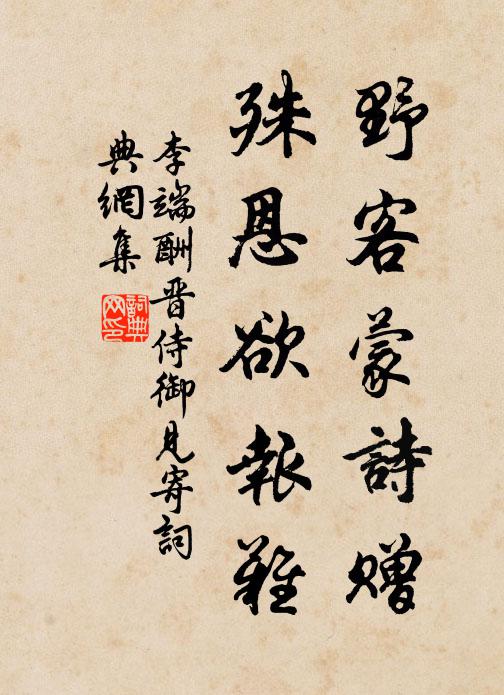 野客蒙詩贈
殊恩欲報難
李端酬晋侍御見寄詞
典網集
詞典網印